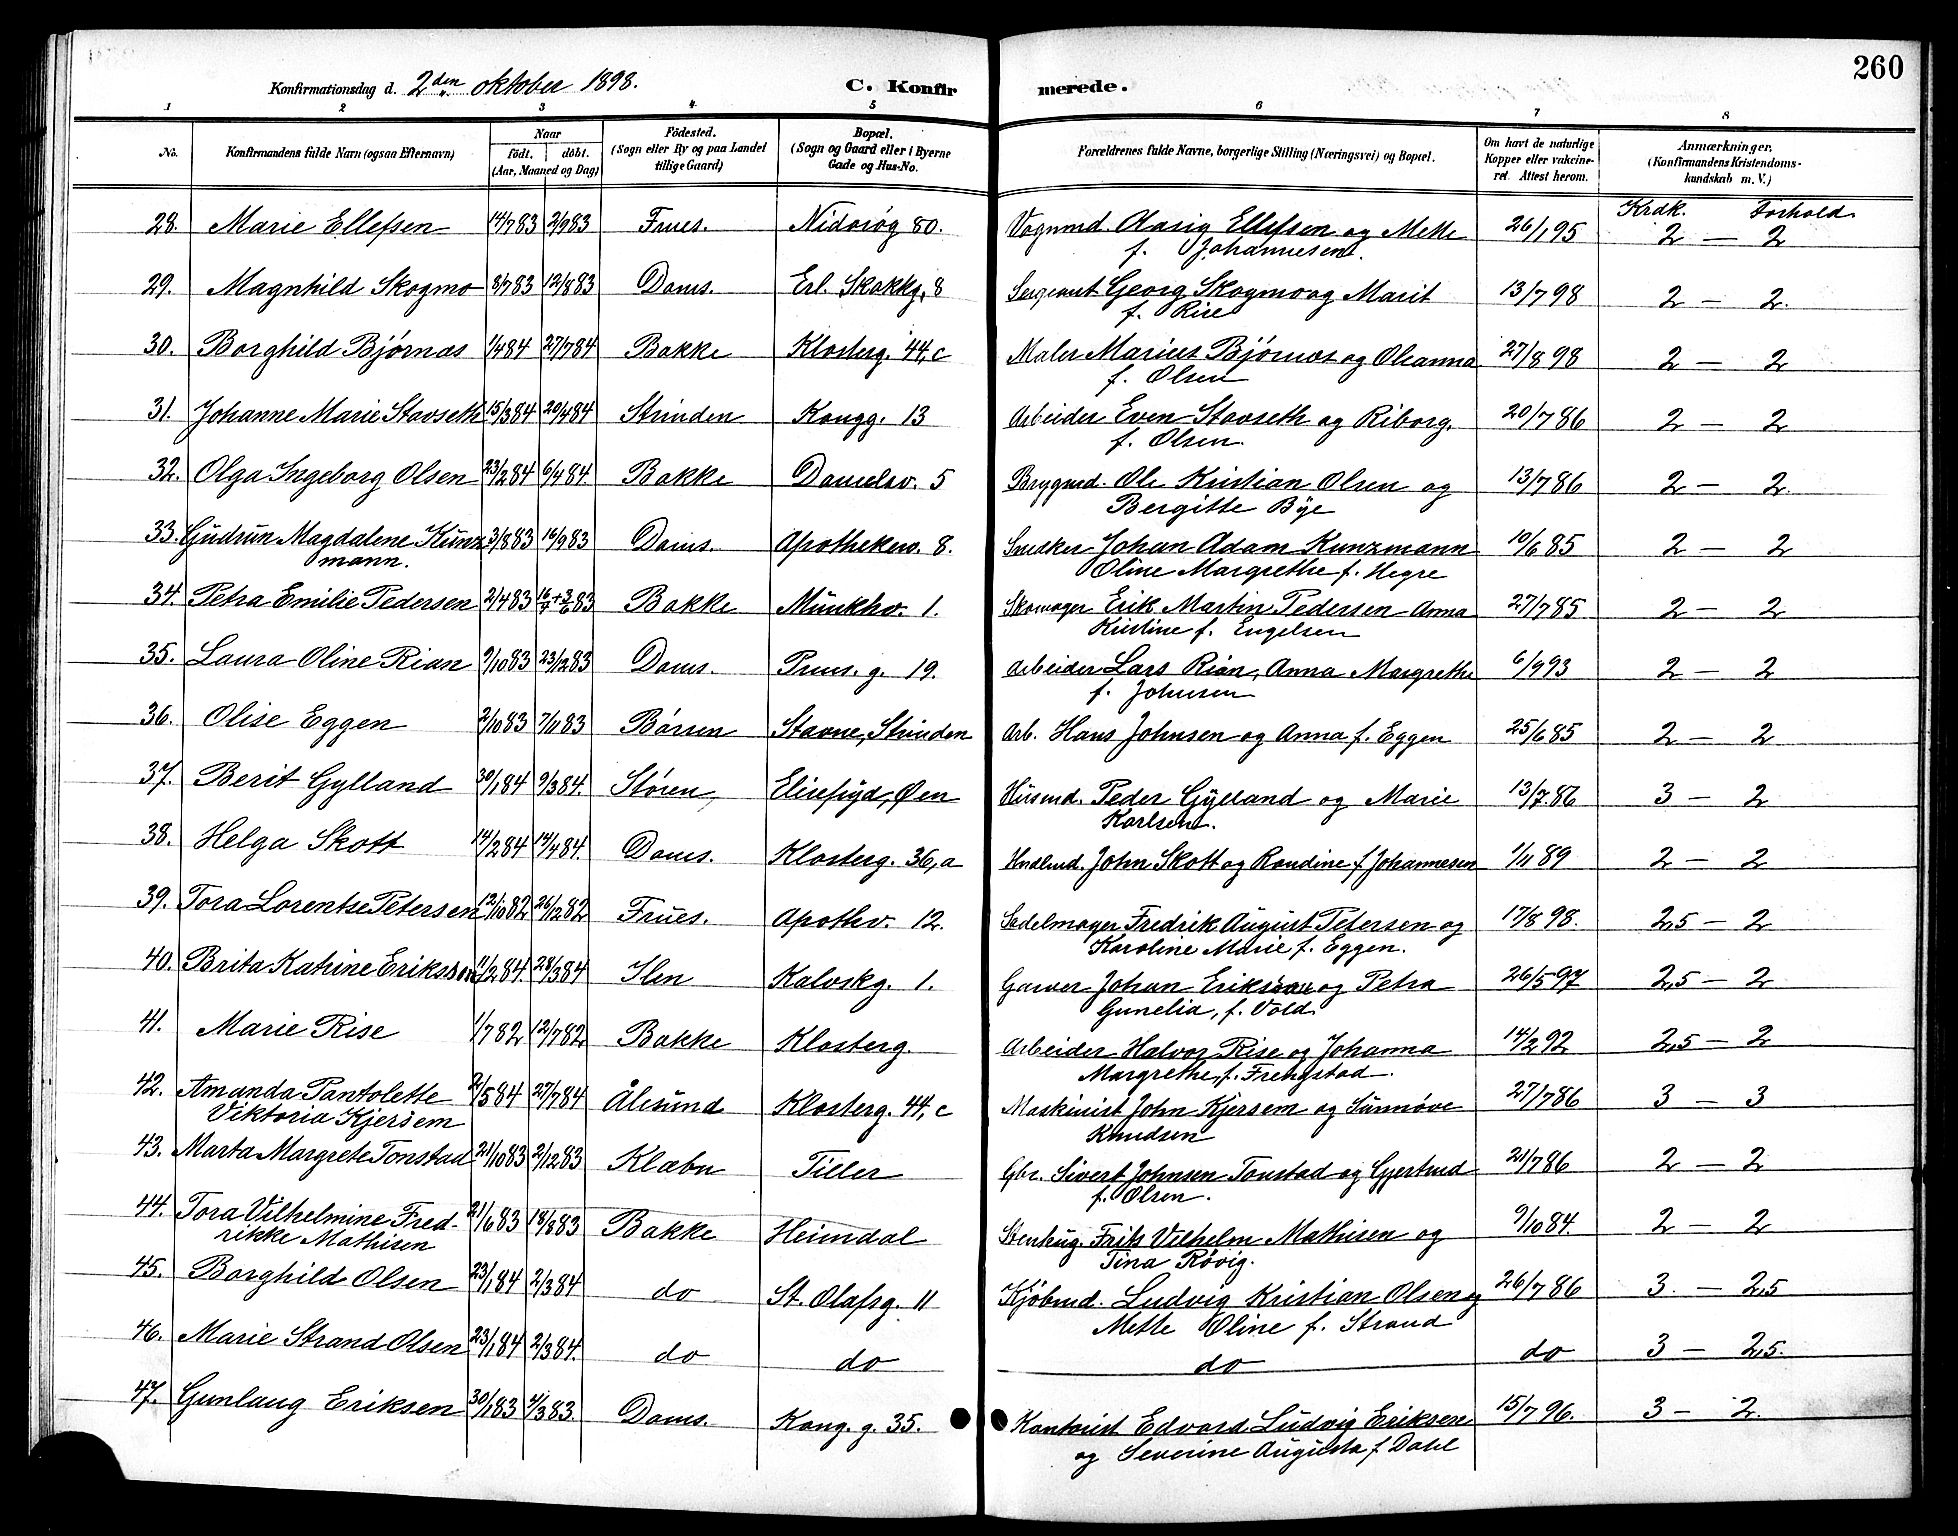 260
Konfirmationsdag d. 2den oktober 1898. C. Konfirmerede.
1 2 3 4 5 6 7 8
No. Konfirmandens fulde Navn (ogsaa Efternavn) Naar født. døbt. (Aar, Maaned og Dag) Fødested. (Sogn eller By og paa Landet tillige Gaard) Bopæl. (Sogn og Gaard eller i Byerne Gade og Hus-No. Forældrenes fulde Navne, borgerlige Stilling (Næringsvei) og Bopæl. Om havt de naturlige Kopper eller vakcineret. Attest herom. Anmærkninger. (Konfirmandens Kristendomskundskab m. V.)
Krdk. Forhold.
28. Marie Ellefsen 14/7 83 2/9 83 Frues. Nidorøg 80. Vognmd. Aasig Ellefsen og Mette 26/1 95 2 — 2
f. Johannesen.
29. Magnhild Skogmo 8/7 83 12/8 83 Doms. Erl. Skakkg. 8 Sergeant Georg Skogmo og Marit 13/7 98 2 — 2.
f. Rise
30. Borghild Bjørnås 1/4 84 27/7 84 Bakke Klosterg. 44,c Maler Marius Bjørnaas og Oleanna 27/8 98 2 — 2
f. Olsen
31. Johanne Marie Stavseth 15/3 84 20/4 84 Strinden Kongg. 13 Arbeider Even Stavseth og Riborg. 20/7 86 2 — 2
f. Olsen.
32. Olga Ingeborg Olsen 23/2 84 6/4 84. Bakke Danielsv. 5 Brygmd. Ole Kristian Olsen og 13/7 86 2 — 2.
Bergitte Bye
33. Gudrun Magdalene Kunz 3/8 83 16/9 83 Doms. Apothekerv. 8. Snedker Johan Adam Kunzmann 10/6 85 2 — 2
mann. Oline Margrethe f. Hegre
34. Petra Emilie Pedersen 2/4 83 Bakke Munkhv. 1. Skomager Erik Martin Pedersen Anna 27/7 85 2 — 2
Kristine f. Engelsen
35. Laura Oline Rian 9/10 83 23/12 83 Doms. Prins. g. 19. Arbeider Lars Rian, Anna Margrethe 6/9 93 2 — 2
f. Johnsen
36. Olise Eggen 2/10 83 7/11 83 Børsen Stavne, Strinden Arb. Hans Johnsen og Anna f. Eggen 25/6 85 2 — 2
37. Berit Gylland 30/1 84 9/3 84. Støren, Øen Husmd. Peder Gylland og Marie 13/7 86 3 — 2
Karlsen.
38. Helga Skott 14/2 84 14/4 84. Doms. Klosterg. 36,a Hndlmd. John Skott og Randine f. Johannesen 1/11 89 2 — 2
39. Tora Lorentse Petersen 12/10 82 26/12 82 Frues. Apothv. 12. Sadelmager Fredrik August Petersen og 17/8 98. 2,5 — 2
Karoline Marie f. Eggen.
40. Brita Katrine Eriksson 11/2 84. 28/3 84 Ilen Kalvskg. 1. Garver Johan Eriksson og Petra 26/5 97 2,5 — 2
Gunelia, f. Vold
41. Marie Rise 1/7 82 12/7 82. Bakke Klosterg. Arbeider Halvor Rise og Johanna 14/2 92 2,5 — 2
Margrethe, f. Frengstad.
42. Amanda Pantolette 2/5 84 27/7 84 Ålesund Klosterg. 44, c Maskinist John Kjersem og Sunnøve 27/7 86 3 — 3
Viktoria Kjersem Knudsen
43. Marta Margrete Tonstad 21/10 83 2/12 83 Klæbu Tiller Gbr. Sivert Johnsen Tonstad og Gjertrud 21/7 86 2 — 2
f. Olsen.
44. Tora Vilhelmine Fred- 21/6 83 18/8 83 Bakke Heimdal Stenhug. Frits Vilhelm Mathisen og 9/10 84. 2 — 2
rikke Mathisen Tina Røvig.
45. Borghild Olsen 23/1 84 2/3 84 do St. Olafsg. 11 Kjøbmd. Ludvig Kristian Olsen og 26/7 86 3. — 2,5
Mette Oline f. Strand
46. Marie Strand Olsen 23/1 84 2/3 84. do do do do 3 — 2,5.
47. Gunlaug Eriksen 30/1 83 4/3 83. Doms. Kong. g. 35. Kontorist Edvard Ludvig Eriksen 15/7 96. 3 — 2.
og Severine Augusta f. Dahl